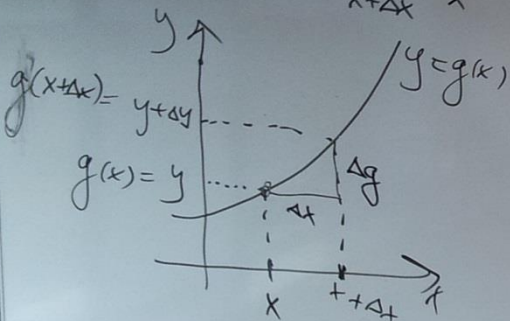 x+Δx x
y
y=g(x)
g(x+Δx)= y+Δy
g(x)=y
Δg
Δx
x x+Δx x